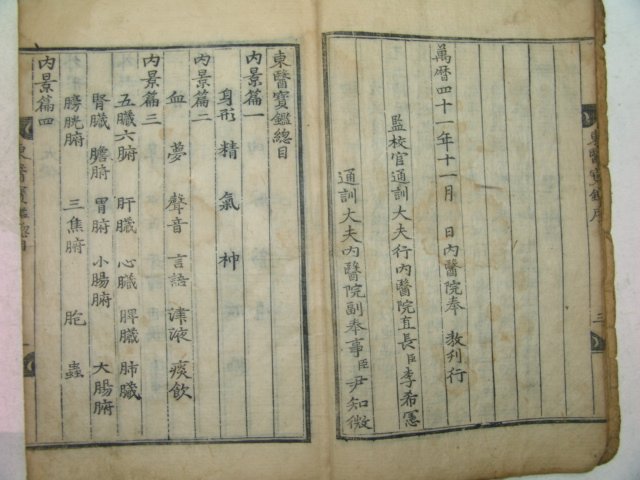 萬曆四十一年十一月 日內醫院奉 敎刊行
監校官通訓大夫行內醫院直長臣李希憲
通訓大夫內醫院副奉事臣尹知微
東醫寶鑑序 三
東醫寶鑑總目
內景篇一
身形 精 氣 神
內景篇二
血 夢 聲音 言語 津液 痰飮
內景篇三
五臟六腑 肝臟 心臟 脾臟 肺臟
腎臟 膽腑 胃腑 小腸腑 大腸腑
膀胱腑 三焦腑 胞 蟲
內景篇四
東醫寶鑑總目